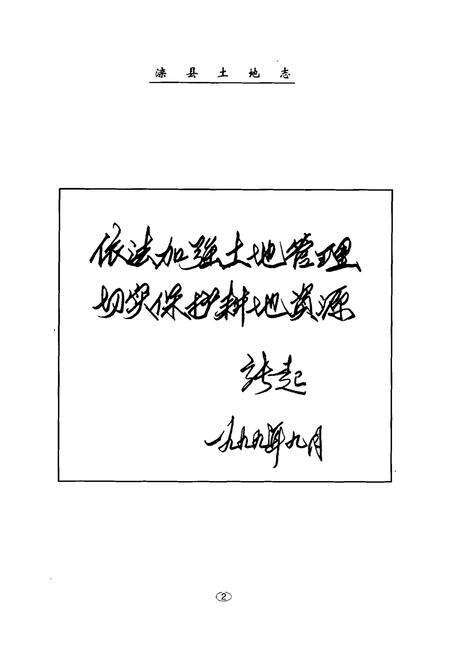 滦县土地志
依法加强土地管理
切实保护耕地资源
张起
一九九九年九月
2